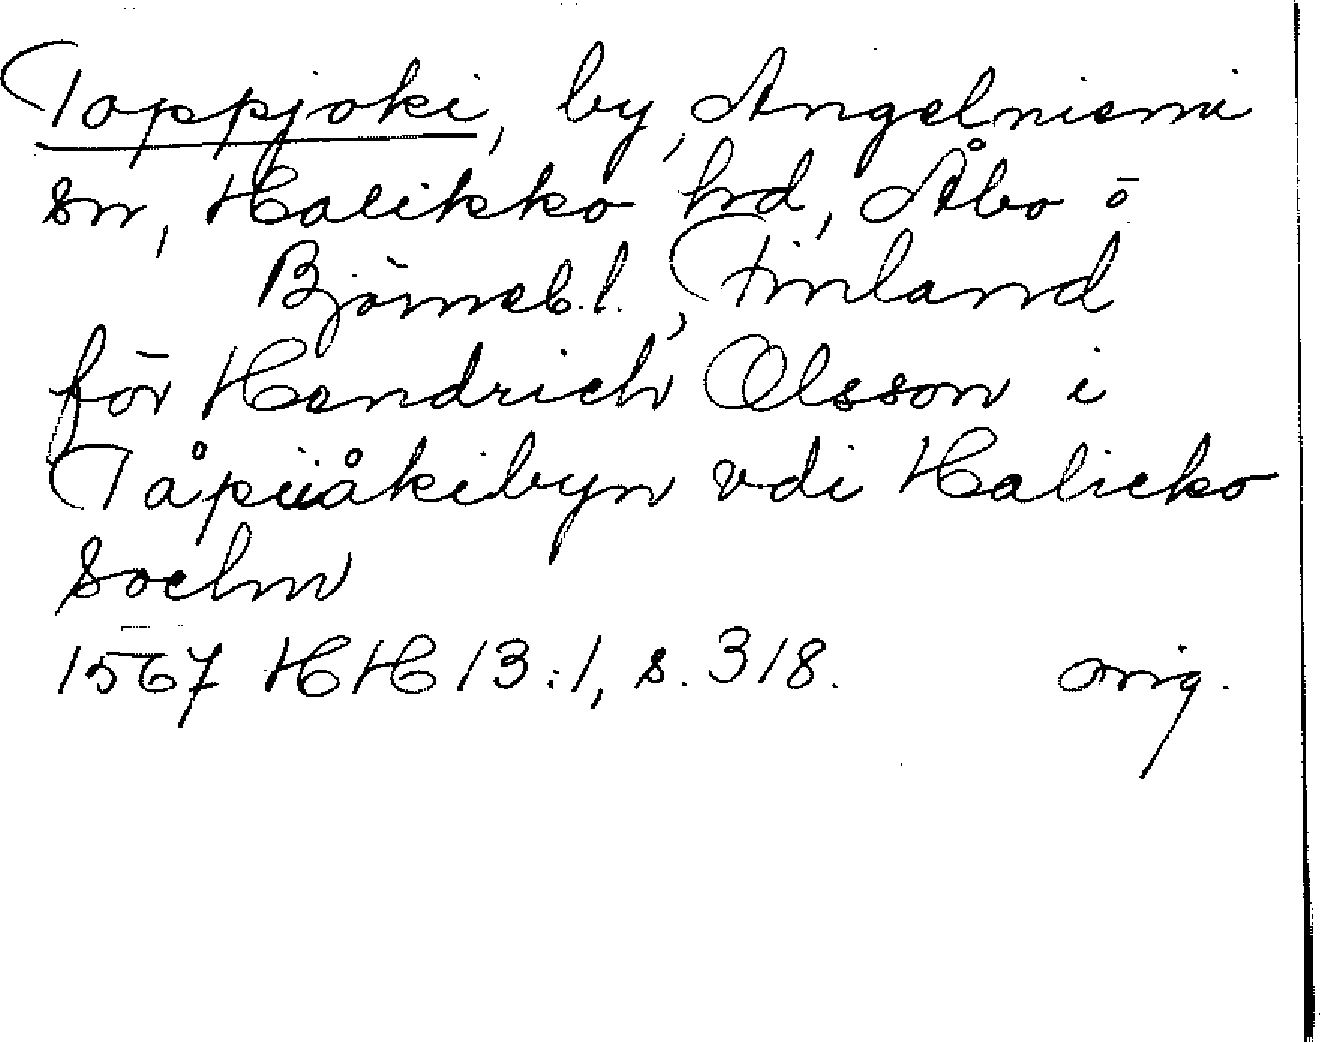 Toppjoki, by, Angelniemi
sn, Halikko hd, Åbo o
Björneb.l., Finland
för Hendrich Olsson i
Tåpiåkibyn vdi Halicko
Sochn
1567 HH 13:1, s. 318. orig.